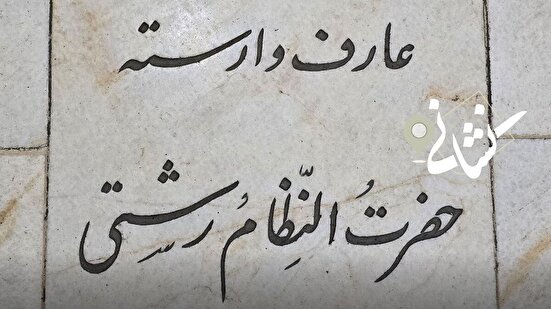 عارف وارسته
حضرتُ النّظِامُ رشتی
نشانی